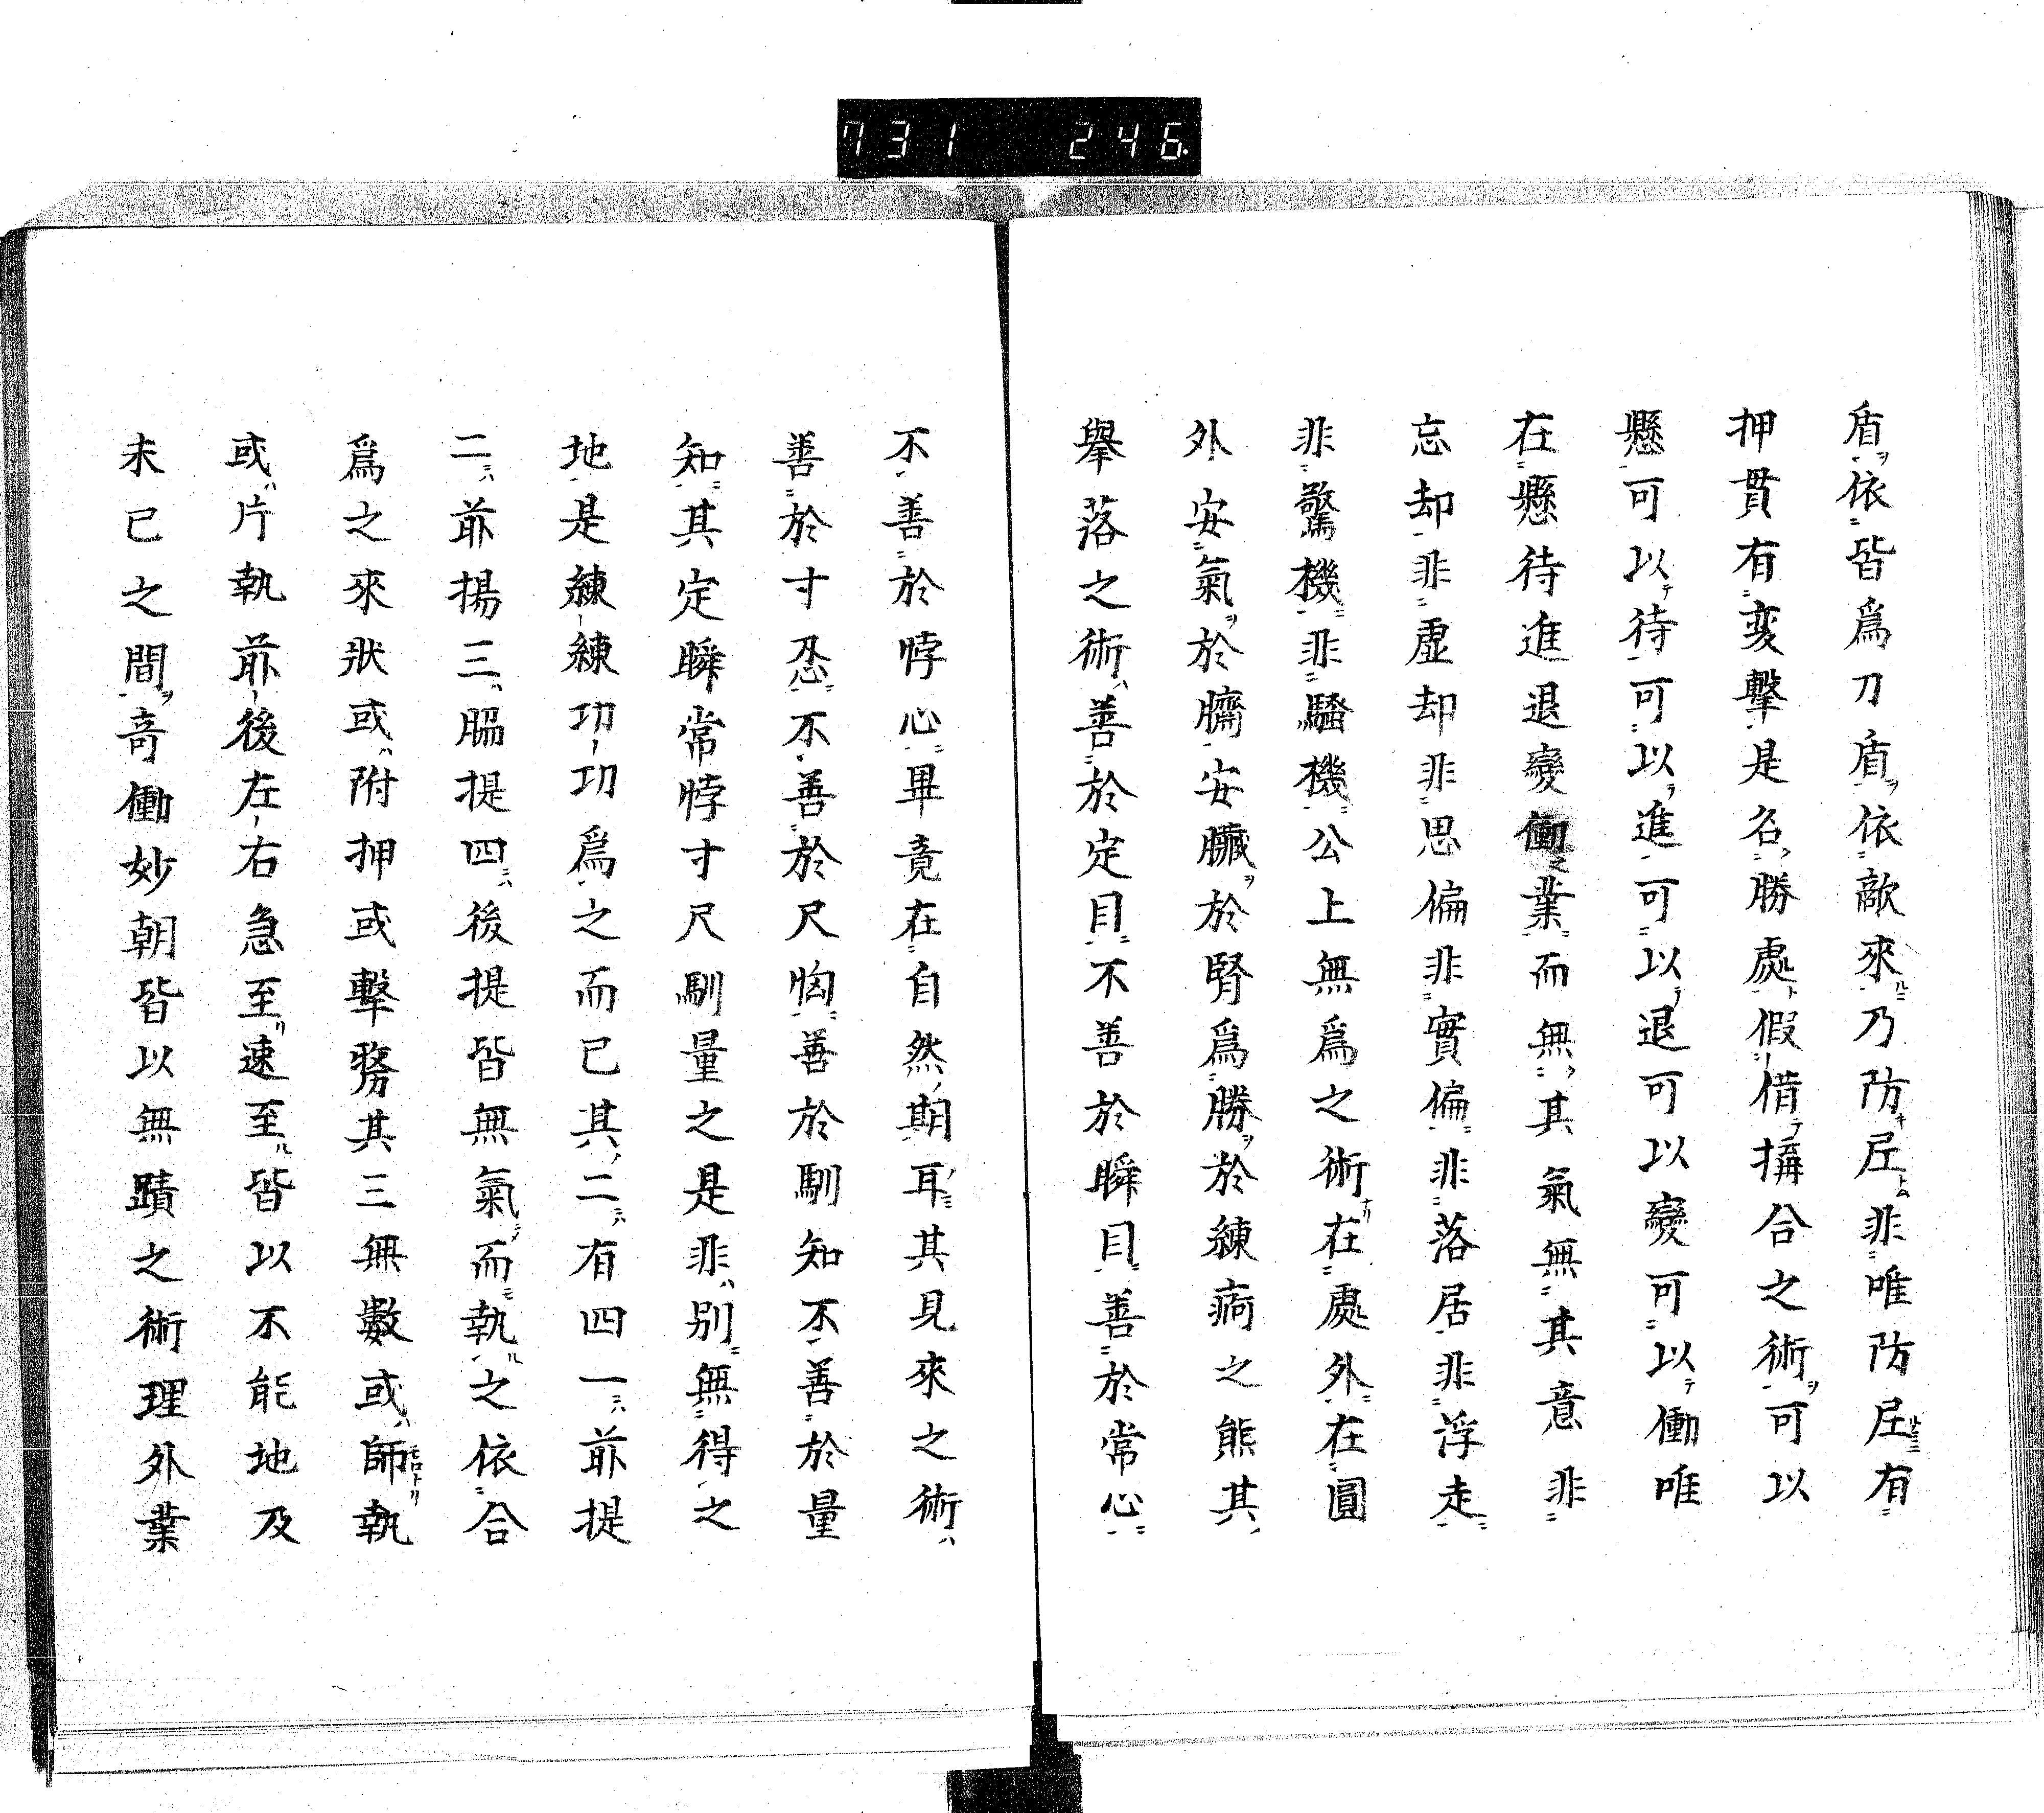 731 246
盾依皆爲刀盾依敵來乃防圧非唯防圧有
押貫有変撃是名勝處假借搆合之術可以
懸可以待可以進可以退可以變可以働唯
在懸待進退變働業而無其氣無其意非
忘却非虛却非思偏非實偏非落居非浮走
非驚機非騷機公上無爲之術在處外在圓
外安氣於臍安臟於腎爲勝於練病之熊其
擧落之術善於定目不善於瞬目善於常心
不善於悖心畢竟在自然期耳其見來之術
善於寸忍不善於尺恟善於馴知不善於量
知其定瞬常悖寸尺馴量之是非別無得之
地是練練功功爲之而已其二有四一前提
二前揚三脇提四後提皆無氣而執之依合
爲之來狀或附押或擊務其三無數或師執
或片執前後左右急至速至皆以不能地及
未已之間奇働妙朝皆以無蹟之術理外業